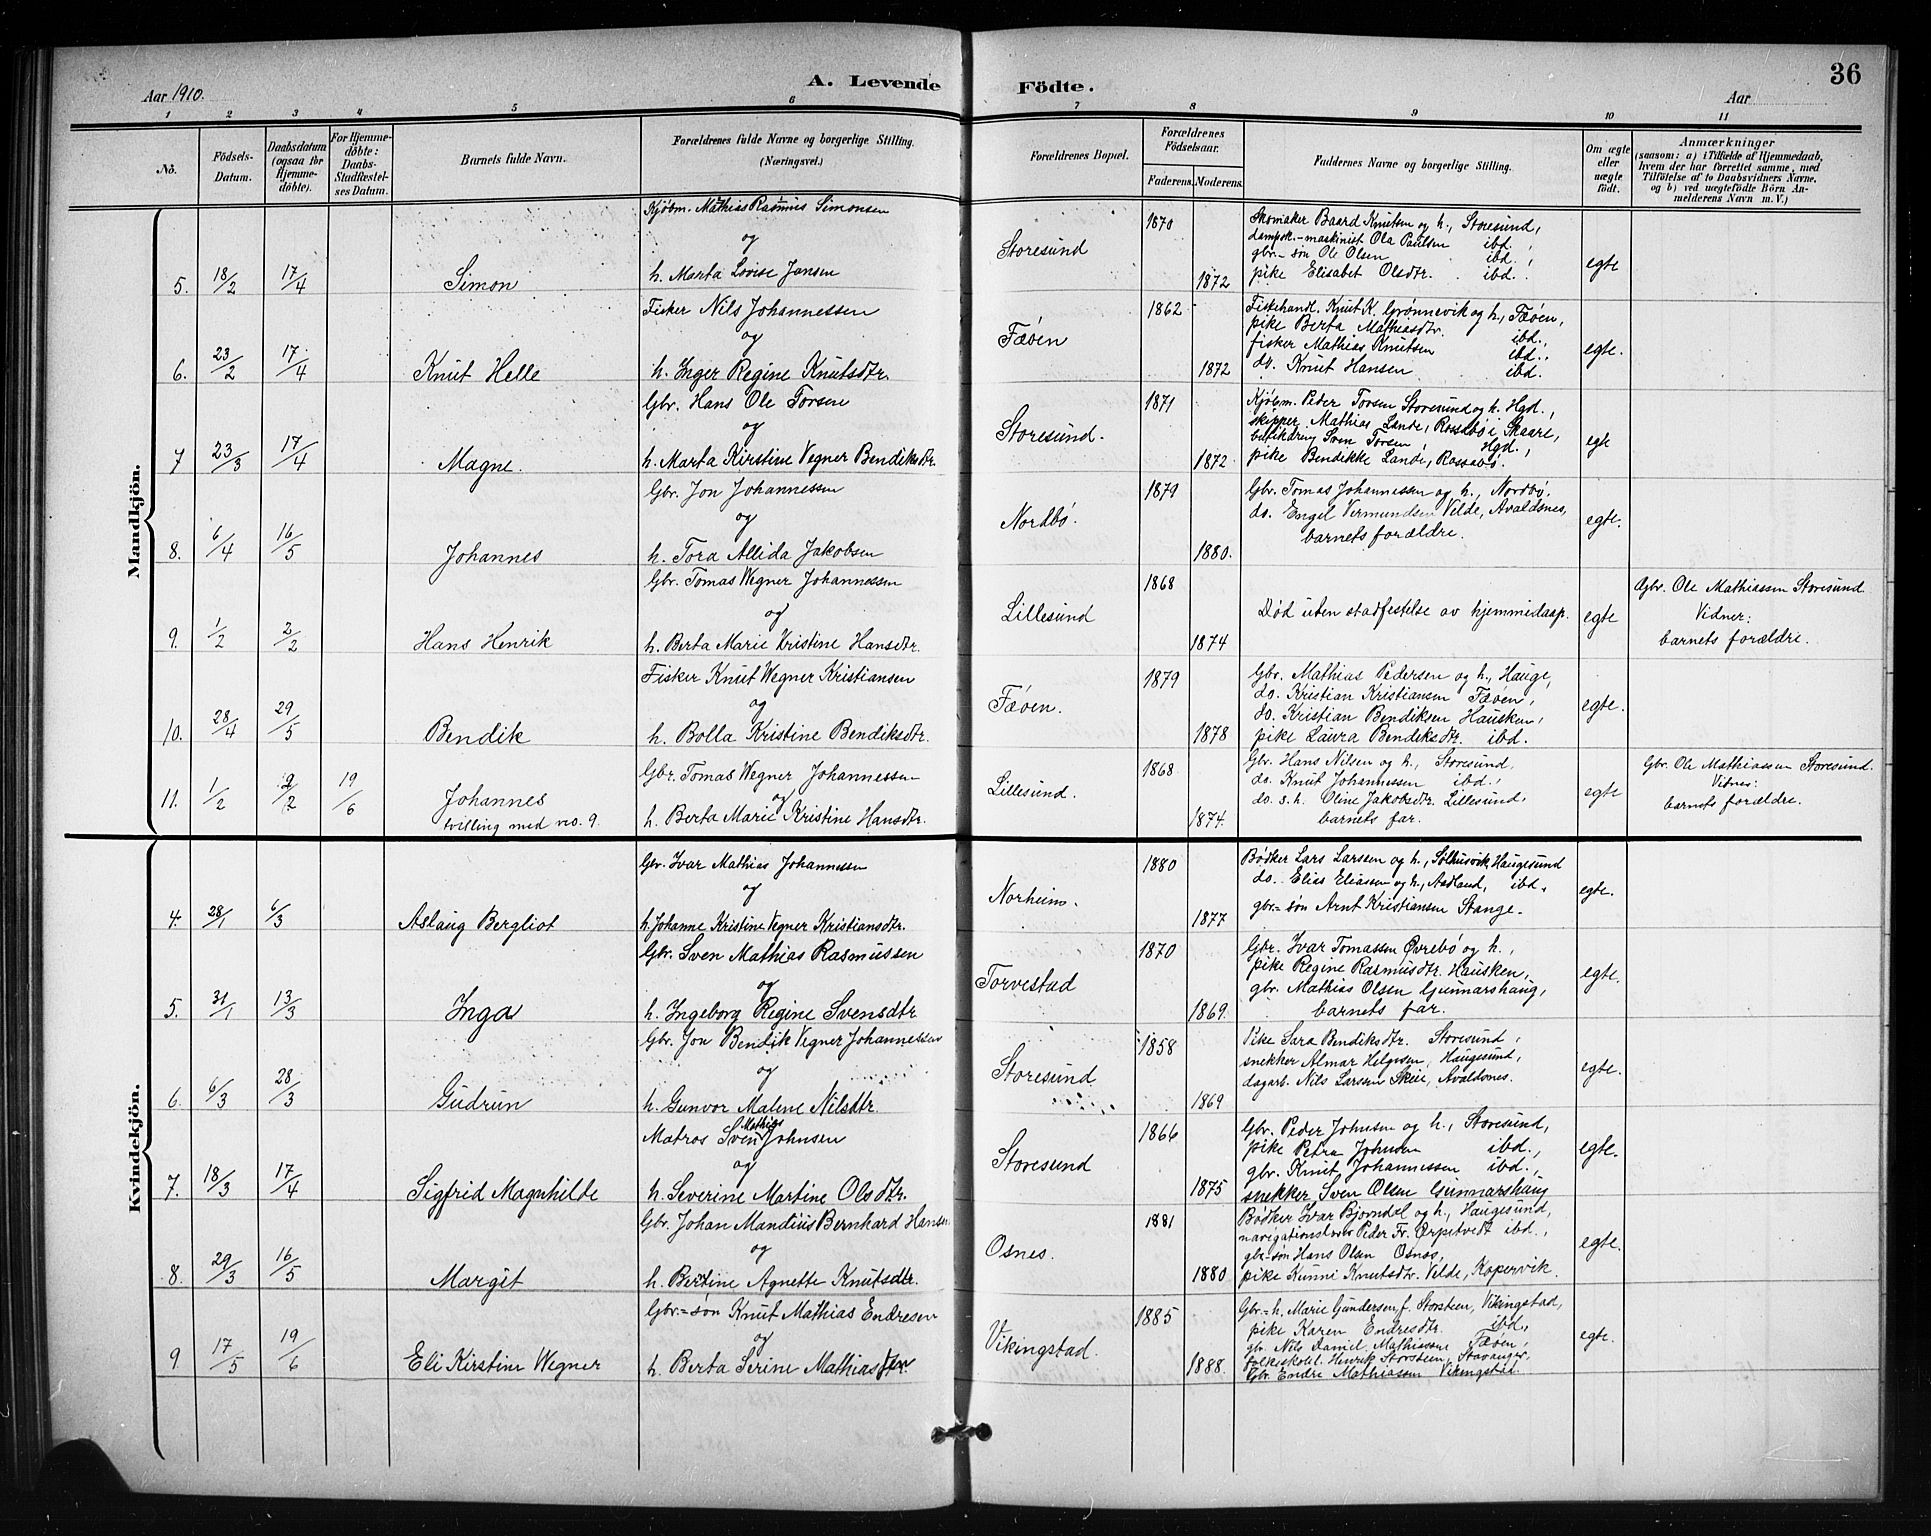 Aar 1910.
A. Levende Födte.
Aar
36
1 2 3 4 5 6 7 8 9 10 11
No.
Födsels-Datum.
Daabsdatum (ogsaa for Hjemme-döbte).
For Hjemme-döbte: Daabs-Stadfæstel-ses Datum.
Barnets fulde Navn.
Forældrenes fulde Navne og borgerlige Stilling.
(Næringsvei.)
Forældrenes Bopæl.
Forældrenes Födselsaar.
Faderens. Moderens.
Faddernes Navne og borgerlige Stilling.
Om ægte eller uægte födt.
Anmærkninger
(saasom: a) i Tilfælde af Hjemmedaab,
hvem der har forrettet samme, med
Tilföielse af to Daabsvidners Navne,
og b) ved uægtefödte Börn An-
melderens Navn m. V.)
Mandkjön.
Kjöbm. Mathias Rasmus Simonsen
og
5. 18/2 17/4 Simon h. Marta Lovise Jansen
Storesund 1870 1872
Skomaker Baard Knutsen og h., Storesund,
dampsk.-maskinist Ola Paulsen ibd.,
gbr.-søn Ole Olsen ibd.,
pike Elisabet Olsdtr. ibd.
egte
Fisker Nils Johannessen
og
6. 23/2 17/4 Knut Helle h. Inger Regine Knutsdtr.
Fæøen 1862 1872
Fiskehandl. Knut K. Grønnevik og h., Fæøen,
pike Berta Mathiasdtr. ibd.,
fisker Mathias Knutsen ibd.,
do. Knut Hansen ibd.
egte.
Gbr. Hans Ole Torsen
og
7 23/3 17/4 Magne. h. Marta Kirstine Vegner Bendiksdtr.
Storesund. 1871 1872
Kjøbm. Peder Torsen Storesund og h. Hgd.,
skipper Mathias Lande, Rossebø i Skaare,
Sven Torsen, Hgd.,
pike Bendikke Lande, Rossabø.
egte
Gbr. Jon Johannessen
og
8. 6/4 16/5 Johannes h. Tora Allida Jakobsen
Nordbø. 1879 1880.
Gbr. Tomas Johannessen og h., Nordbø,
do. Engel Vermundsen Velde, Avaldsnes,
barnets forældre.
egte.
Gbr. Tomas Wegner Johannessen
og
9. 1/2 2/2 Hans Henrik h. Berta Marie Kristine Hansdtr.
Lillesund 1868 1874
Död uten stadfestelse av hjemmedaap.
egte
Gbr. Ole Mathiassen Storesund
Vidner:
barnets forældre.
Fisker Knut Wegner Kristiansen
og
10. 28/4 29/5 Bendik h. Bolla Kristine Bendiksdtr.
Fæøen. 1879 1878
Gbr. Mathias Pedersen og h., Hauge,
do. Kristian Kristiansen Fæøen,
do. Kristian Bendiksen Hausken,
pike Laura Bendiksdtr. ibd.
egte.
Gbr. Tomas Wegner Johannessen
og
11. 1/2 2/2 19/6 Johannes h. Berta Marie Kristine Hansdtr.
tvilling med no. 9.
Lillesund. 1868 1874.
Gbr. Hans Nilsen og h., Storesund,
do. Knut Johannessen ibd.,
do. s. h. Oline Jakobsdtr. Lillesund,
barnets far.
egte
Gbr. Ole Mathiassen Storesund.
Vidner:
barnets forældre.
Kvindekjön.
Gbr. Ivar Mathias Johannessen
og
4. 28/1 6/3 Aslaug Bergliot h. Johanne Kristine Vegner Kristiansdtr.
Norheim. 1880 1877
Bødker Lars Larsen og h., Sølhusvik, Haugesund
do. Elias Eliassen og h., Aadland, ibd.,
gbr.-søn Arnt Kristiansen Stange.
egte.
Gbr. Sven Mathias Rasmussen
og
5. 31/1 13/3 Inga h. Ingeborg Regine Svensdtr
Torvestad 1870 1869.
Gbr. Ivar Tomassen Øvrebø og h.,
pike Regine Rasmusdtr. Hausken,
gbr. Mathias Olsen Gunnarshaug,
barnets far.
egte.
Gbr. Jon Bendik Vegner Johannessen
og
6. 6/3 28/3 Gudrun h. Gunvor Malene Nilsdtr.
Storesund 1858 1869
Pike Sara Bendiksdtr. Storesund,
snekker Almar Helgesen, Haugesund,
dagarb. Nils Larssen Skeie, Avaldsnes.
egte.
Matros Sven Mathias Johnsen
og
7. 18/3 17/4 Sigfrid Magnhilde h. Severine Martine Olsdtr.
Storesund 1866 1875
Gbr. Peder Johnsen og h., Storesund,
pike Petra Johnsen ibd.,
gbr. Knut Johannessen ibd.,
snekker Sven Olsen Gunnarshaug
egte.
Gbr. Johan Mandius Bernhard Hansen
og
8. 29/3 16/5 Margit h. Bertine Agnette Knutsdtr.
Osnes. 1881 1880
Bødker Ivar Bjørndal og h., Haugesund,
navigationslærer Peder Fr. Ørpetvedt ibd.,
gbr-søn Hans Olsen Osnes,
pike Kunni Knutsdtr. Velde, Kopervik.
egte.
Gbr.-søn Knut Mathias Endresen
og
9 17/5 19/6 Eli Kirstine Wegner h. Berta Serine Mathiassen
Vikingstad. 1885 1888.
Gbr.-h. Marie Gundersen f. Storsteen, Vikingstad,
pike Karen Endresdtr. ibd.,
gbr. Nils Daniel Mathiassen Fæøen,
Henrik Storsteen, Stavanger,
Gbr. Endre Mathiassen Vikingstad.
egte.